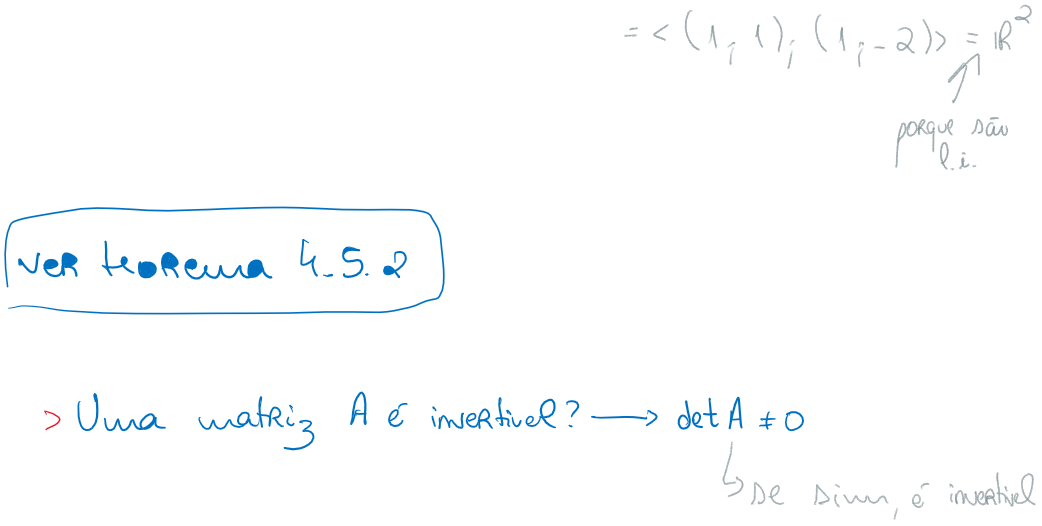 = < (1, 1), (1, -2)> = ℝ²
porque são
l.i.
ver teorema 4.5.2
> Uma matriz A é invertivel? → det A ≠ 0
↳ se sim, é invertivel